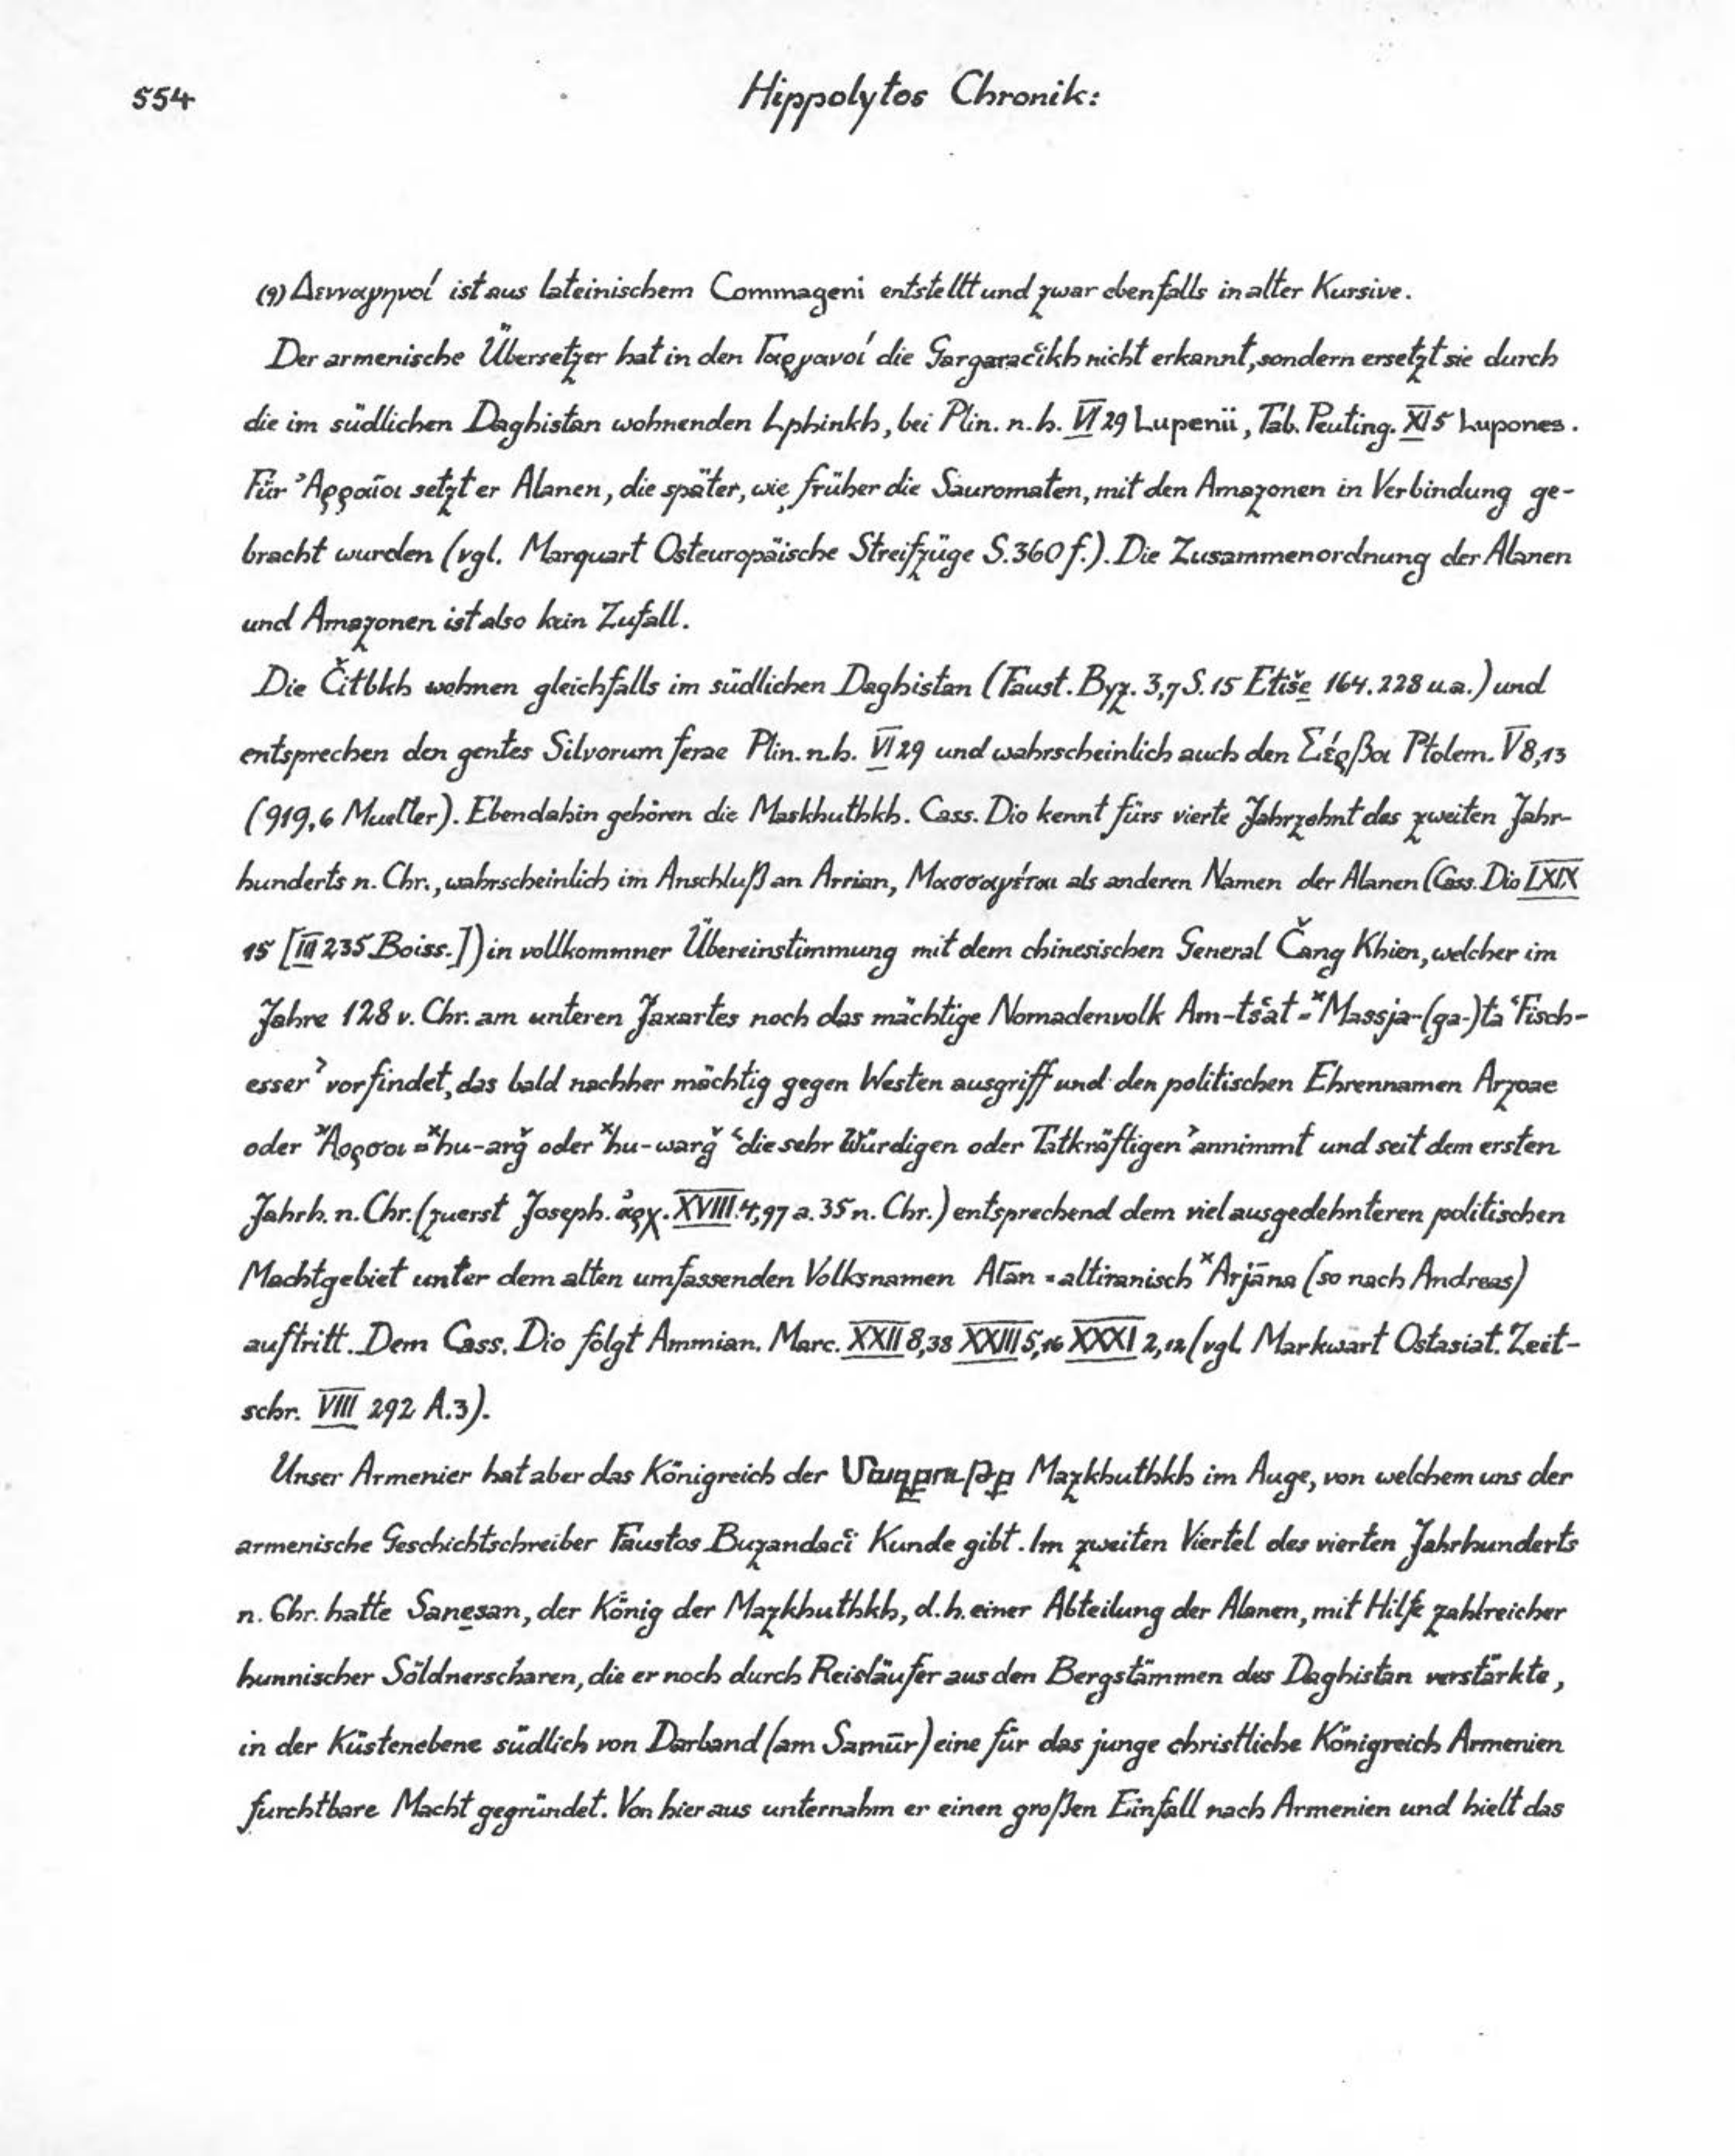 554
Hippolytos Chronik:
(9) Δενναγηνοί ist aus lateinischem Commageni entstellt und zwar ebenfalls in alter Kursive.
Der armenische Übersetzer hat in den Γαργανοί die Gargaračikh nicht erkannt, sondern ersetzt sie durch
die im südlichen Daghistan wohnenden Lphinkh, bei Plin. n. h. VI 29 Lupenii, Tab. Peuting. XI 5 Lupones.
Für Ἀρραῖοι setzt er Alanen, die später, wie früher die Sauromaten, mit den Amazonen in Verbindung ge-
bracht wurden (vgl. Marquart Osteuropäische Streifzüge S. 360 f.). Die Zusammenordnung der Alanen
und Amazonen ist also kein Zufall.
Die Čitbkh wohnen gleichfalls im südlichen Daghistan (Faust. Byz. 3,7 S. 15 Ełiše 164. 228 u.a.) und
entsprechen den gentes Silvorum ferae Plin. n. h. VI 29 und wahrscheinlich auch den Σέρβοι Ptolem. V 8,13
(919,6 Mueller). Ebendahin gehören die Maskhuthkh. Cass. Dio kennt fürs vierte Jahrzehnt des zweiten Jahr-
hunderts n. Chr., wahrscheinlich im Anschluß an Arrian, Μασσαγέται als anderen Namen der Alanen (Cass. Dio LXIX
15 [III 235 Boiss.]) in vollkommner Übereinstimmung mit dem chinesischen General Čang Khien, welcher im
Jahre 128 v. Chr. am unteren Jaxartes noch das mächtige Nomadenvolk Am-tšât = ˣMassja-(ga-)ta ‘Fisch-
esser’ vorfindet, das bald nachher mächtig gegen Westen ausgriff und den politischen Ehrennamen Arzoae
oder Ἄορσοι = ˣhu-arǧ oder ˣhu-warǧ ‘die sehr Würdigen oder Tatkräftigen’ annimmt und seit dem ersten
Jahrh. n. Chr. (zuerst Joseph. ἀρχ. XVIII 4,97 a. 35 n. Chr.) entsprechend dem viel ausgedehnteren politischen
Machtgebiet unter dem alten umfassenden Volksnamen Alān = altiranisch ˣArjāna (so nach Andreas)
auftritt. Dem Cass. Dio folgt Ammian. Marc. XXII 8,38 XXIII 5,16 XXXI 2,12 (vgl. Markwart Ostasiat. Zeit-
schr. VIII 292 A. 3).
Unser Armenier hat aber das Königreich der Մազքութք Mazkhuthkh im Auge, von welchem uns der
armenische Geschichtschreiber Faustos Buzandači Kunde gibt. Im zweiten Viertel des vierten Jahrhunderts
n. Chr. hatte Sanesan, der König der Mazkhuthkh, d. h. einer Abteilung der Alanen, mit Hilfe zahlreicher
hunnischer Söldnerscharen, die er noch durch Reisläufer aus den Bergstämmen des Daghistan verstärkte,
in der Küstenebene südlich von Darband (am Samūr) eine für das junge christliche Königreich Armenien
furchtbare Macht gegründet. Von hier aus unternahm er einen großen Einfall nach Armenien und hielt das